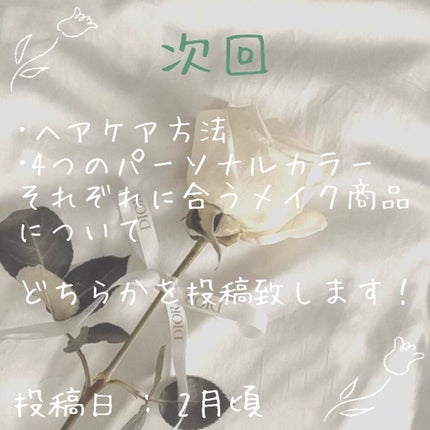 次回
・ヘアケア方法
・4つのパーソナルカラー
それぞれに合うメイク商品
について
DIOR
どちらかを投稿致します！
DIOR
投稿日 : 2月頃